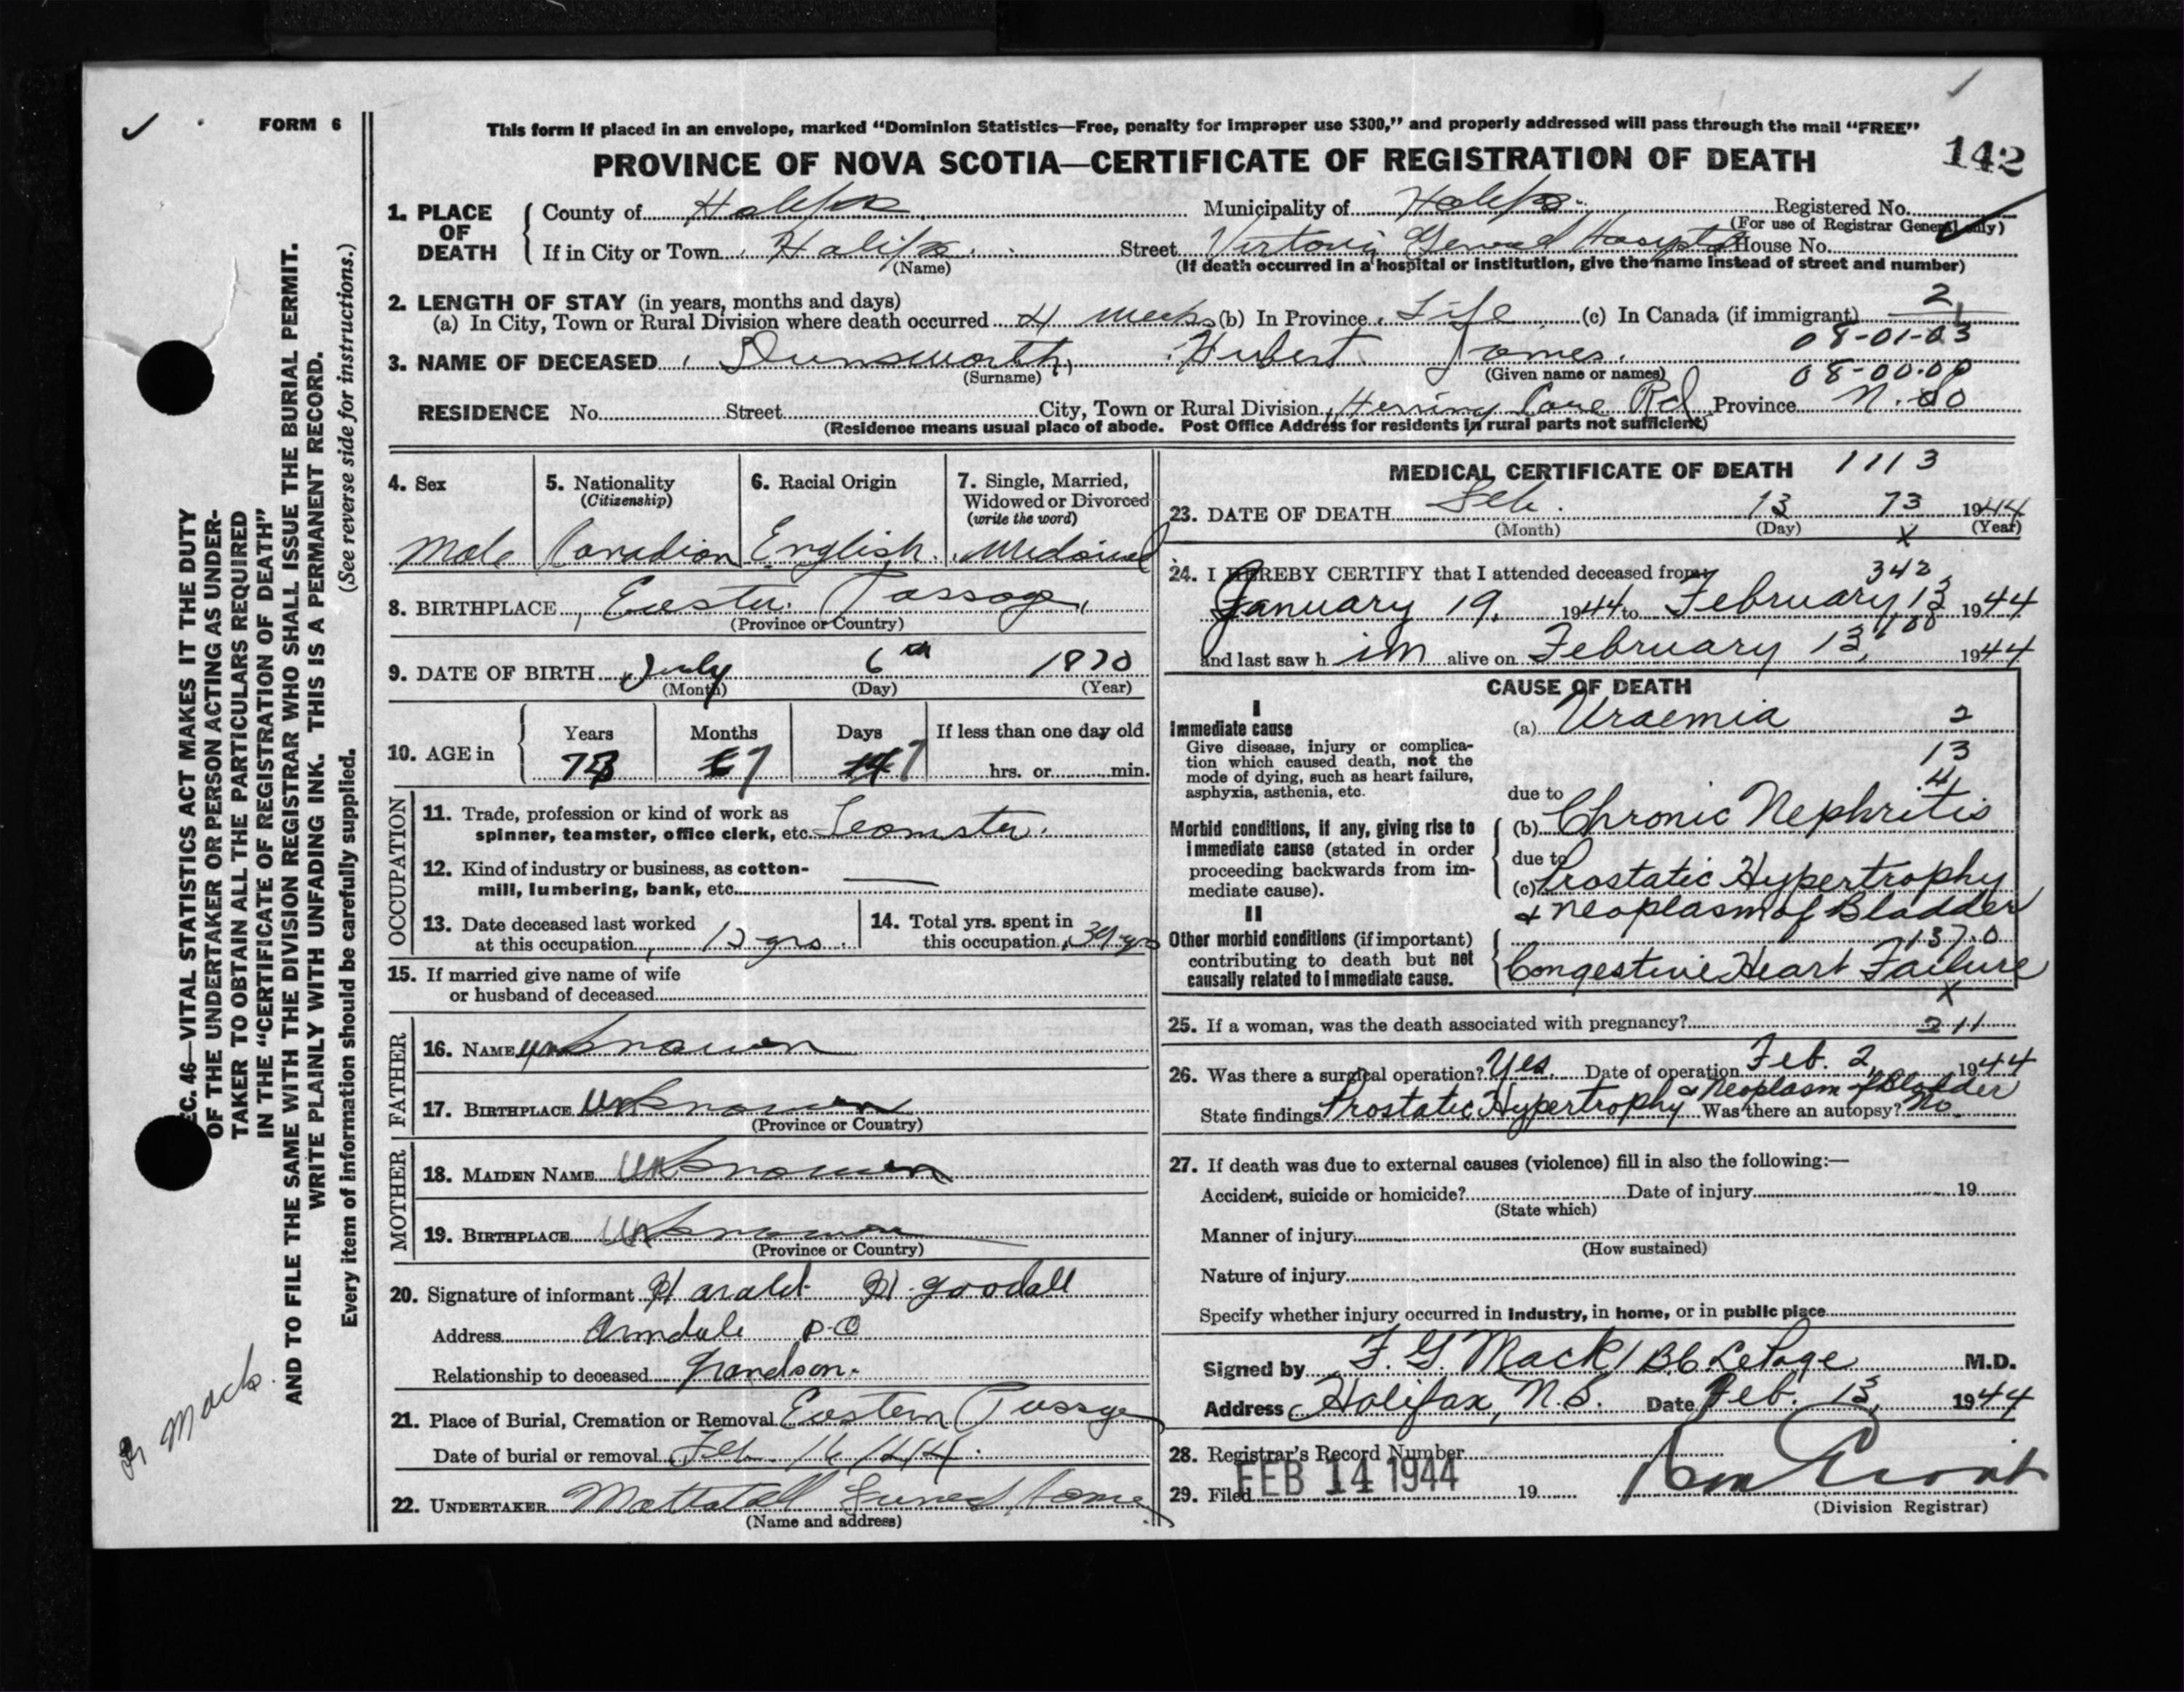 FORM 6
This form if placed in an envelope, marked "Dominion Statistics—Free, penalty for improper use $300," and properly addressed will pass through the mail "FREE"
PROVINCE OF NOVA SCOTIA—CERTIFICATE OF REGISTRATION OF DEATH
142
1. PLACE OF DEATH
County of Halifax Municipality of Halifax Registered No.
(For use of Registrar General only)
If in City or Town Halifax Street Victoria General Hospital House No.
(Name) (If death occurred in a hospital or institution, give the name instead of street and number)
2. LENGTH OF STAY (in years, months and days) 2
(a) In City, Town or Rural Division where death occurred 4 weeks (b) In Province Life (c) In Canada (if immigrant)
08-01-03
3. NAME OF DECEASED Dunsworth Hubert James
(Surname) (Given name or names) 08-00-00
RESIDENCE No. Street City, Town or Rural Division Herring Cove Rd Province N.S.
(Residence means usual place of abode. Post Office Address for residents in rural parts not sufficient)
4. Sex
Male
5. Nationality
(Citizenship)
Canadian
6. Racial Origin
English
7. Single, Married,
Widowed or Divorced
(write the word)
Widowed
8. BIRTHPLACE Eastern Passage
(Province or Country)
9. DATE OF BIRTH July 6th 1870
(Month) (Day) (Year)
10. AGE in
Years Months Days If less than one day old
73 7 7 hrs. or min.
OCCUPATION
11. Trade, profession or kind of work as
spinner, teamster, office clerk, etc. Teamster
12. Kind of industry or business, as cotton-
mill, lumbering, bank, etc.
13. Date deceased last worked
at this occupation 12 yrs.
14. Total yrs. spent in
this occupation yrs
15. If married give name of wife
or husband of deceased
FATHER
16. NAME Unknown
17. BIRTHPLACE Unknown
(Province or Country)
MOTHER
18. MAIDEN NAME Unknown
19. BIRTHPLACE Unknown
(Province or Country)
20. Signature of informant Harald H. Goodall
Address Armdale P.O
Relationship to deceased Grandson.
21. Place of Burial, Cremation or Removal Eastern Passage
Date of burial or removal Feb. 16 1944
22. UNDERTAKER Mattatall Funeral Home
(Name and address)
MEDICAL CERTIFICATE OF DEATH 1113
23. DATE OF DEATH Feb. 13 73 1944
(Month) (Day) (Year)
X
24. I HEREBY CERTIFY that I attended deceased from
342
January 19, 1944 to February 13 1944
and last saw him alive on February 13, 1944
CAUSE OF DEATH
I
Immediate cause
Give disease, injury or complica-
tion which caused death, not the
mode of dying, such as heart failure,
asphyxia, asthenia, etc.
(a) Uraemia 2
13
4
due to
Morbid conditions, if any, giving rise to
immediate cause (stated in order
proceeding backwards from im-
mediate cause).
(b) Chronic Nephritis
due to
(c) Prostatic Hypertrophy
& Neoplasm of Bladder
II
Other morbid conditions (if important)
contributing to death but not
causally related to immediate cause.
137.0
Congestive Heart Failure
X
25. If a woman, was the death associated with pregnancy? 211
26. Was there a surgical operation? Yes. Date of operation Feb. 2, 1944
State findings Prostatic Hypertrophy & Neoplasm of Bladder Was there an autopsy? No
27. If death was due to external causes (violence) fill in also the following:—
Accident, suicide or homicide? Date of injury 19
(State which)
Manner of injury
(How sustained)
Nature of injury
Specify whether injury occurred in Industry, in home, or in public place
Signed by F. G. Mack / B.C. LePage M.D.
Address Halifax, N.S. Date Feb. 13, 1944
28. Registrar's Record Number
29. Filed FEB 14 1944 19
(Division Registrar)
SEC. 46—VITAL STATISTICS ACT MAKES IT THE DUTY
OF THE UNDERTAKER OR PERSON ACTING AS UNDER-
TAKER TO OBTAIN ALL THE PARTICULARS REQUIRED
IN THE "CERTIFICATE OF REGISTRATION OF DEATH"
AND TO FILE THE SAME WITH THE DIVISION REGISTRAR WHO SHALL ISSUE THE BURIAL PERMIT.
WRITE PLAINLY WITH UNFADING INK. THIS IS A PERMANENT RECORD.
Every item of information should be carefully supplied. (See reverse side for instructions.)
Dr Mack.